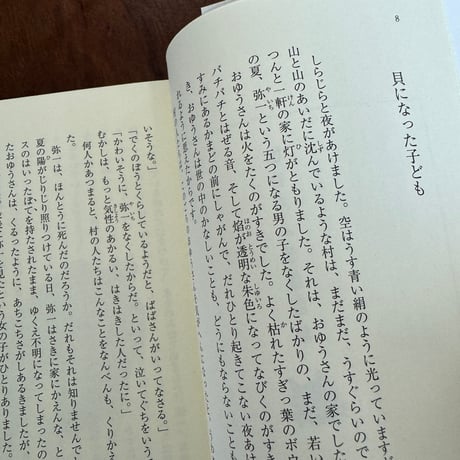 8
貝になった子ども
しらじらと夜があけました。空はうす青い絹のように光っています
山と山のあいだに沈んでいるような村は、まだまだ、うすぐらいので
つんと一軒の家に灯がともりました。それは、おゆうさんの家でした
の夏、弥一という五つになる男の子をなくしたばかりの、まだ、若い
おゆうさんは火をたくのがすきでした。よく枯れたすぎっ葉のボ
パチパチとはぜる音、そして焔が透明な朱色になってなびくのがすき
すみにあるかまどの前にしゃがんで、だれひとり起きてこない夜あけ
き、おゆうさんは世の中のかなしいことも、どうにもならないこ
れるように思えたからです。
いそうな。」
「でくのぼうとくらしているようだと、ばばさんがいってなさる。」
「かわいそうに、弥一をなくしたからだ。」といって、泣いてぐちをいう
むかしは、もっと気性のあかるい、はきはきした人だったに。」
何人かあつまると、村の人たちはこんなことをなんべんも、くりかえ
た。
弥一は、ほんとうに死んだのだろうか。だれもそれは知りませんで
夏の陽がじりじり照りつけている日、弥一はさきに家にかえんな、と
スのはいったぼてを持たされたまま、ゆくえ不明になってしまったの
たおゆうさんは、くるったように、あちこちさがしあるきましたが
弥一を見たという女の子がひとりありました。